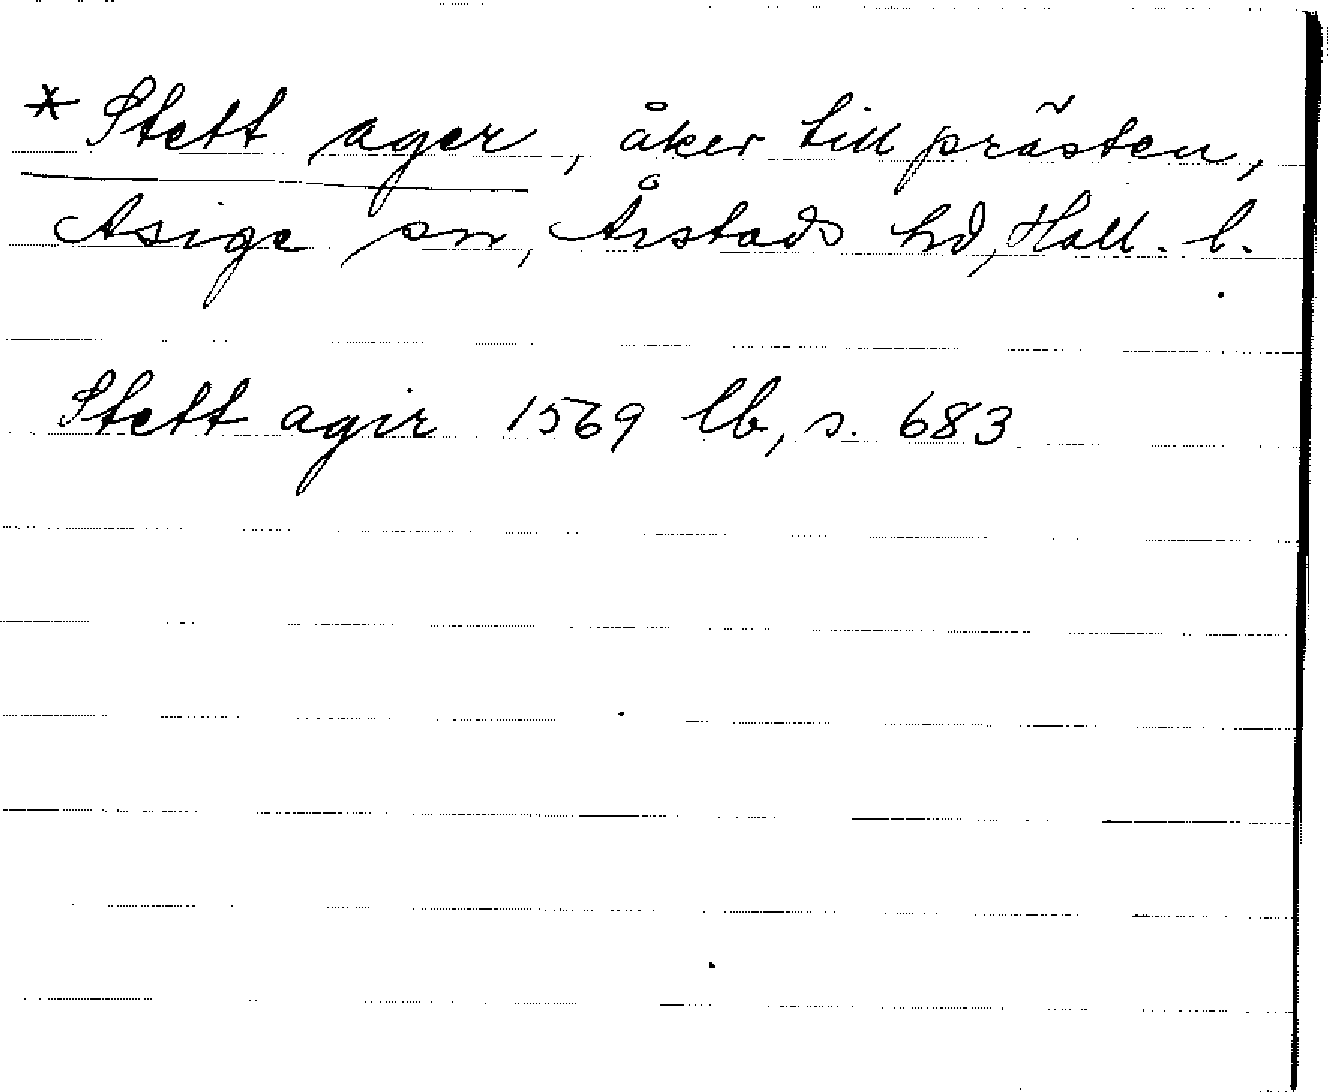 *Stett ager, åker till prästen,
Asige sn, Årstads hd, Hall. l.
Stett agir 1569 lb, s. 683